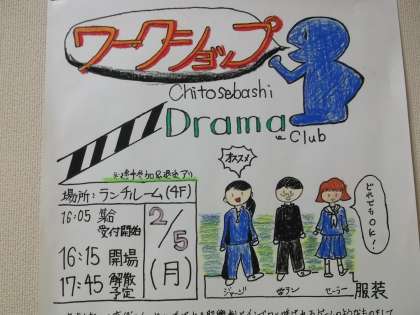 ワークショップ
Chitosebashi
Drama
Club
場所:ランチルーム(4F)
16:05
受付開始
16:15 開場
17:45 解散
予定
2/5
(月)
オススメ
どれでもOK!
ジャージ
学ラン
セーラー
服装